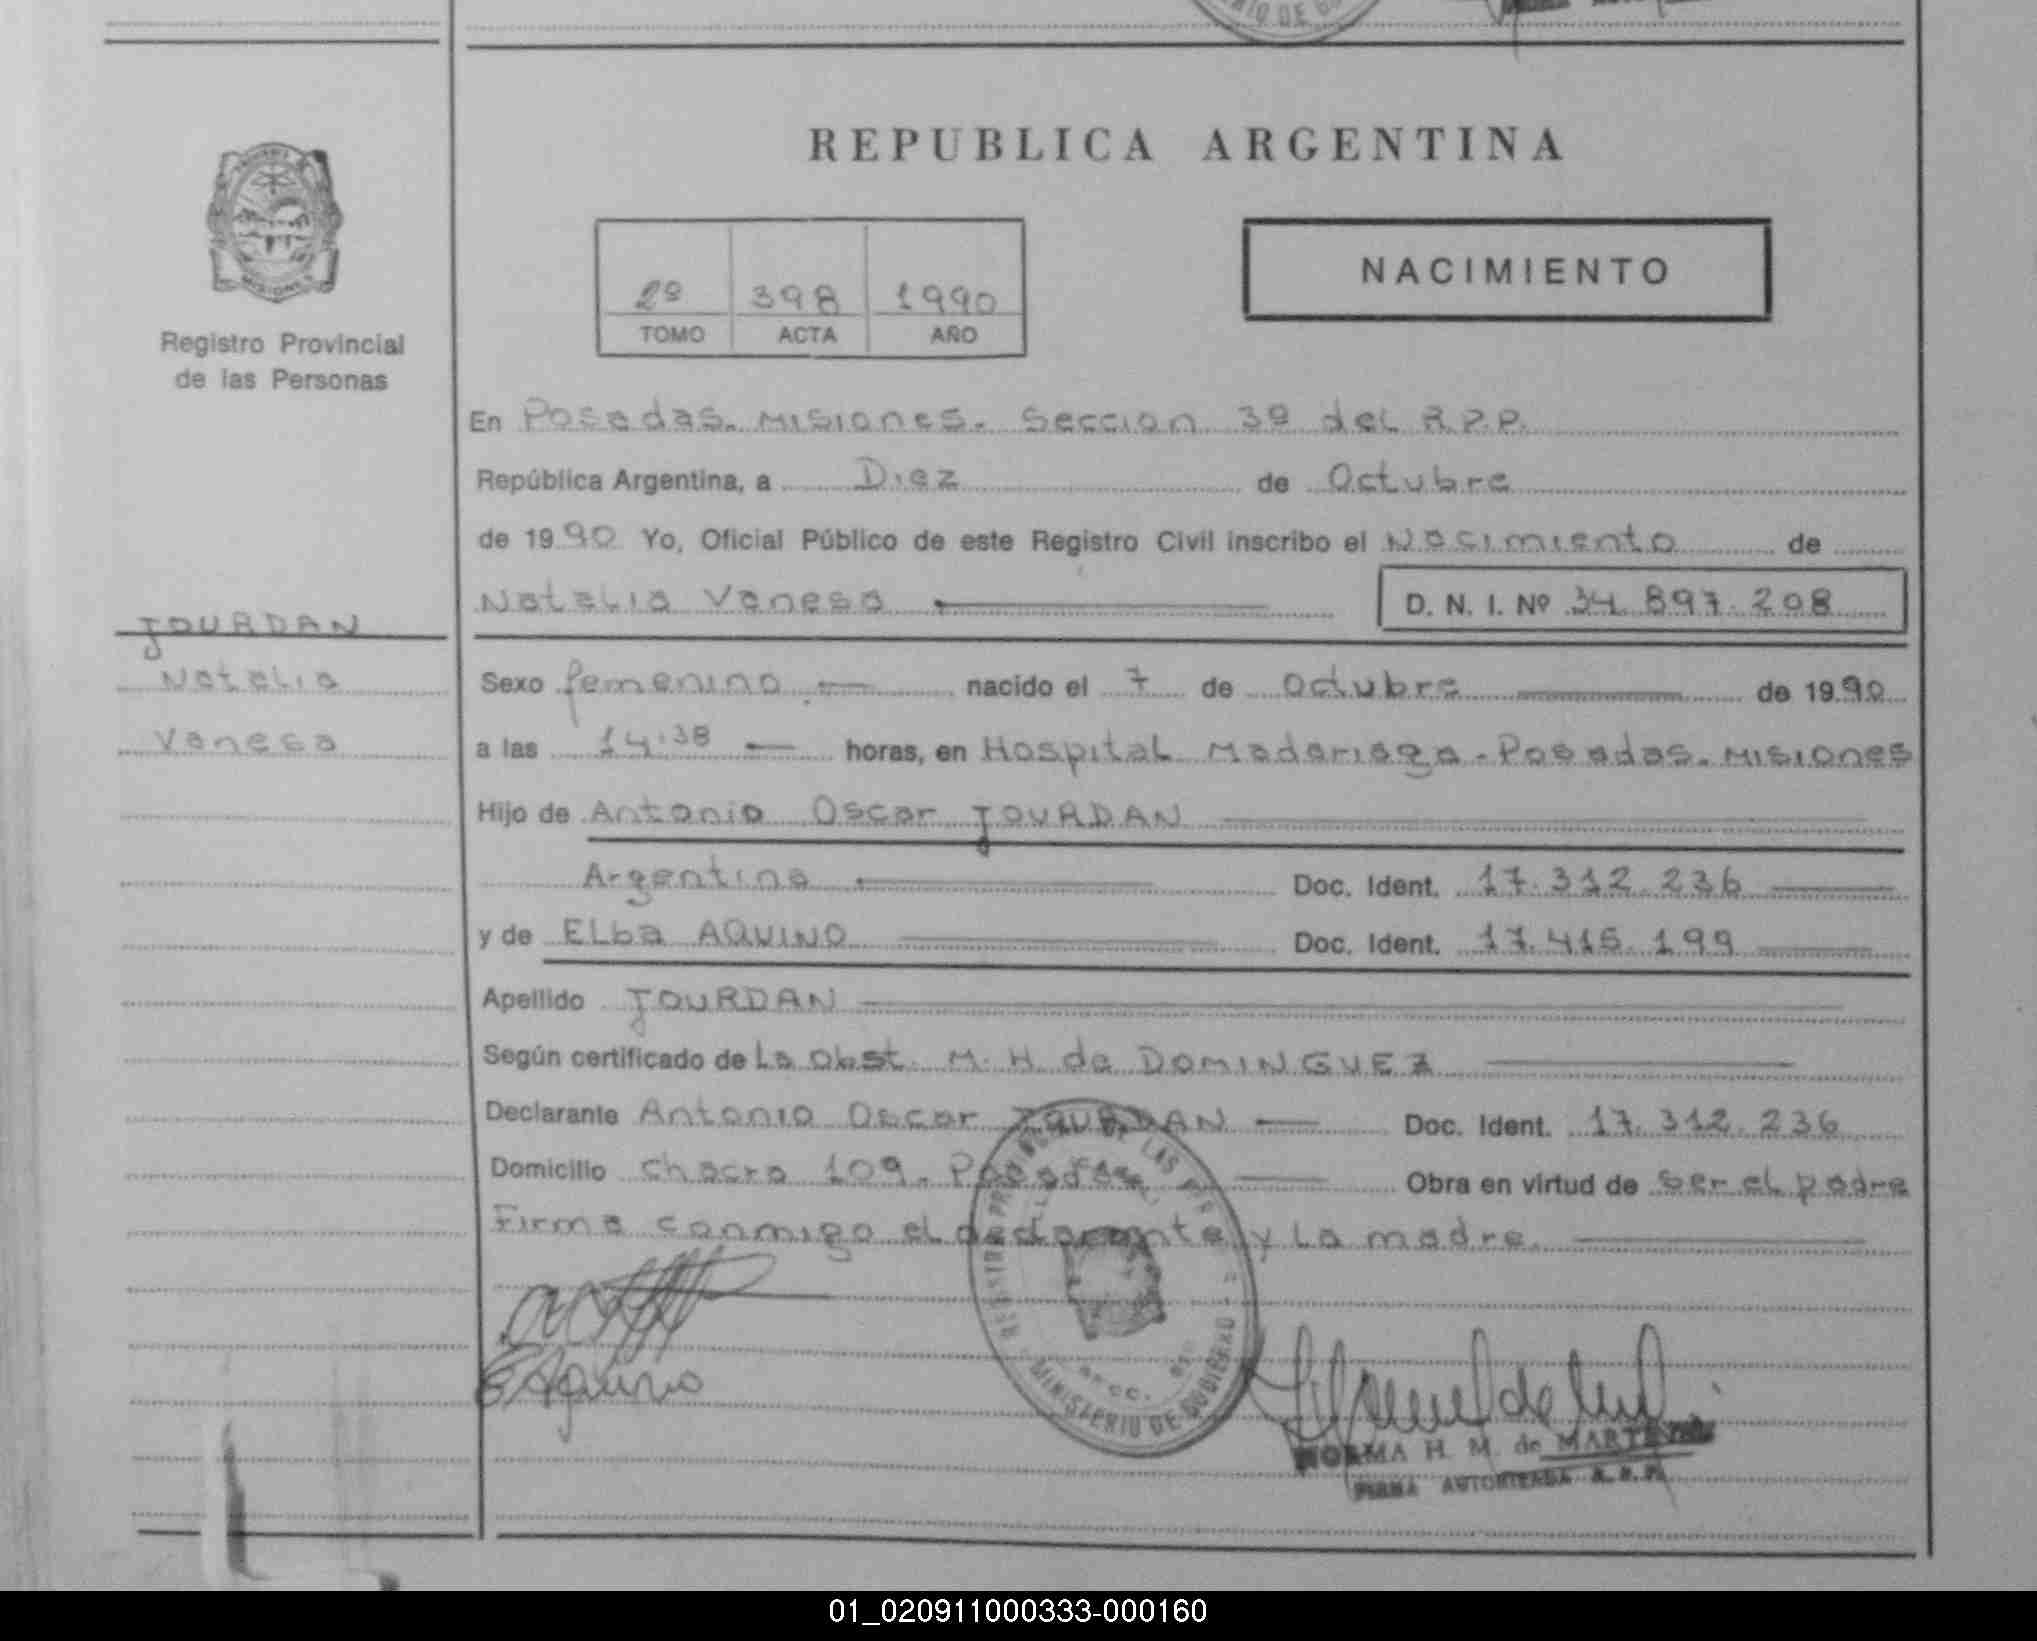 REPUBLICA ARGENTINA
Registro Provincial
de las Personas
2º 398 1990
TOMO ACTA AÑO
NACIMIENTO
En Posadas. Misiones. Seccion 3º del R.P.P.
República Argentina, a Diez de Octubre
de 1990 Yo, Oficial Público de este Registro Civil inscribo el Nacimiento de
Natalia Vanesa D. N. I. Nº 34.897.208
JOURDAN
Natalia
Vanesa
Sexo femenino nacido el 7 de Octubre de 1990
a las 14:38 horas, en Hospital Madariaga - Posadas. Misiones
Hijo de Antonio Oscar JOURDAN
Argentina Doc. Ident. 17.312.236
y de Elba AQUINO Doc. Ident. 17.415.199
Apellido JOURDAN
Según certificado de La Obst. M. H. de DOMINGUEZ
Declarante Antonio Oscar JOURDAN Doc. Ident. 17.312.236
Domicilio Chacra 109. Posadas Obra en virtud de ser el padre
Firma conmigo el declarante y La madre.
EAquino
REGISTRO PROVINCIAL DE LAS PER
MINISTERIO DE GOBIERNO
NORMA H. M. de
FIRMA AUTORIZADA R. P. P.
01_020911000333-000160